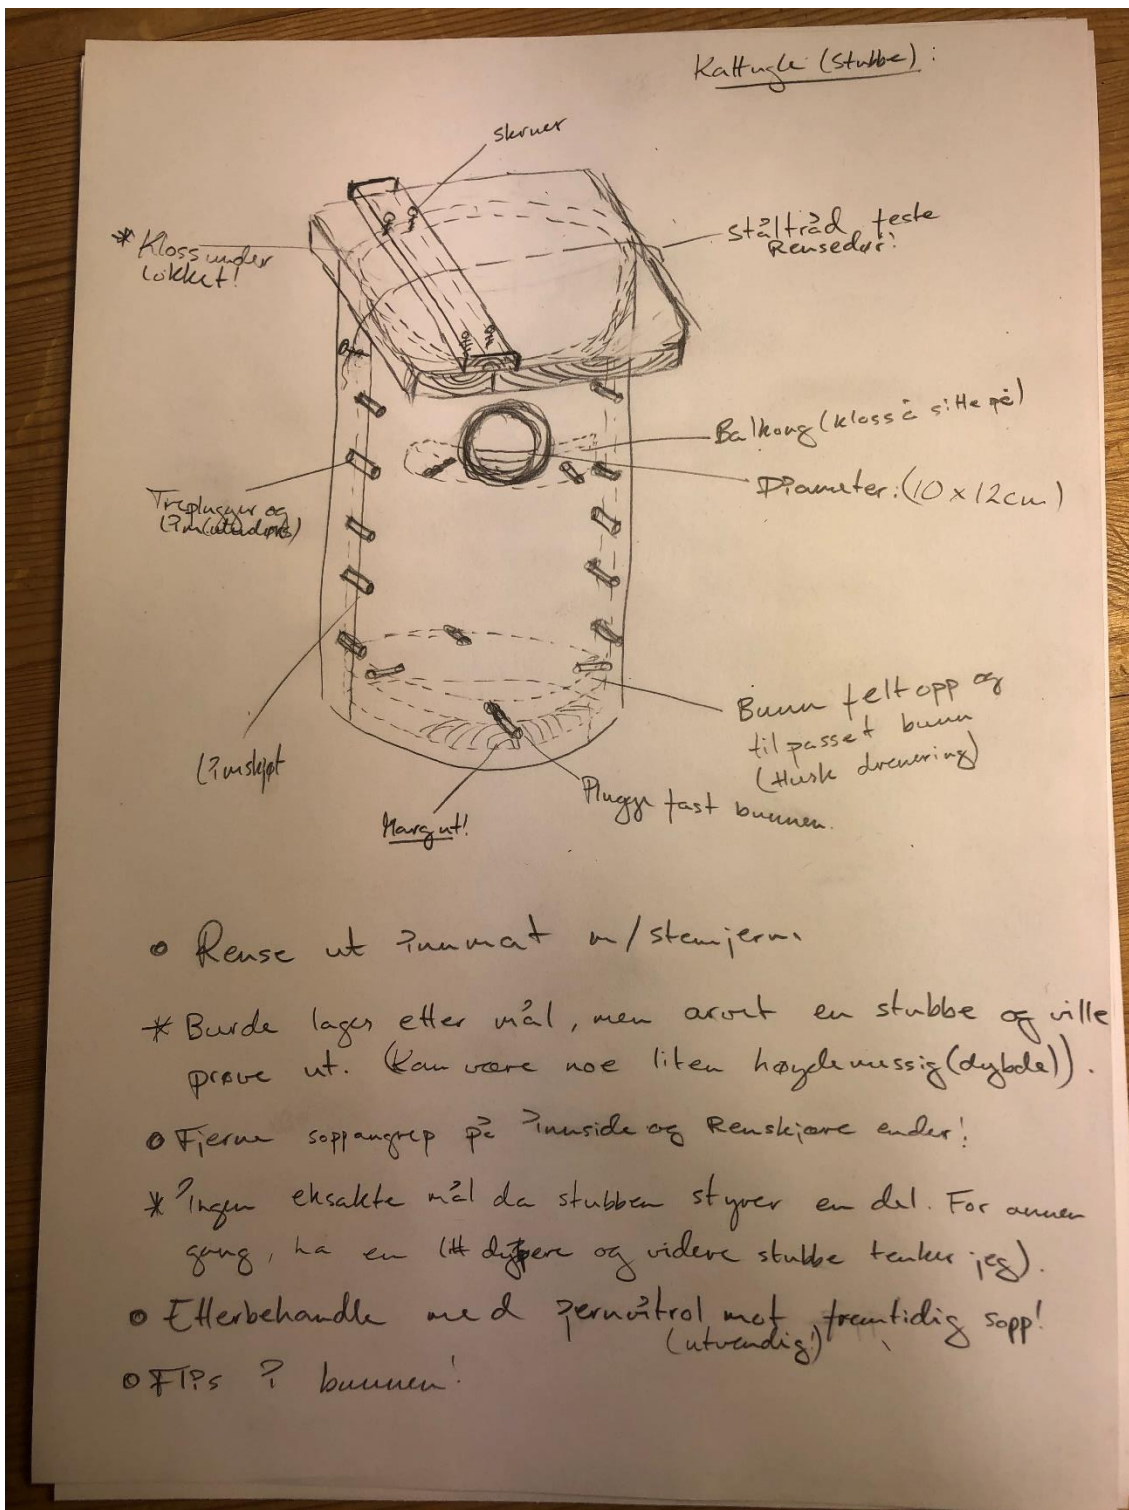 Kattugle (stubbe):
skruer
* Kloss under
lokket!
Ståltråd feste
Rensedør!
Balkong (kloss å sitte på)
Diameter: (10 x 12cm)
Treplugger og
lim (utendørs)
Limskjøt
Marg ut!
Plugge fast bunnen.
Bunn felt opp og
tilpasset bunn
(Husk drenering)
• Rense ut innmat m/stemjern.
* Burde lages etter mål, men arvet en stubbe og ville
prøve ut. (Kan være noe liten høydemessig (dybde)).
• Fjerne soppangrep på innside og Renskjære ender!
* Ingen eksakte mål da stubben styrer en del. For annen
gang, ha en litt dypere og videre stubbe tenker jeg).
• Etterbehandle med jernvitrol mot fremtidig sopp!
(utvendig!)
• Flis i bunnen!